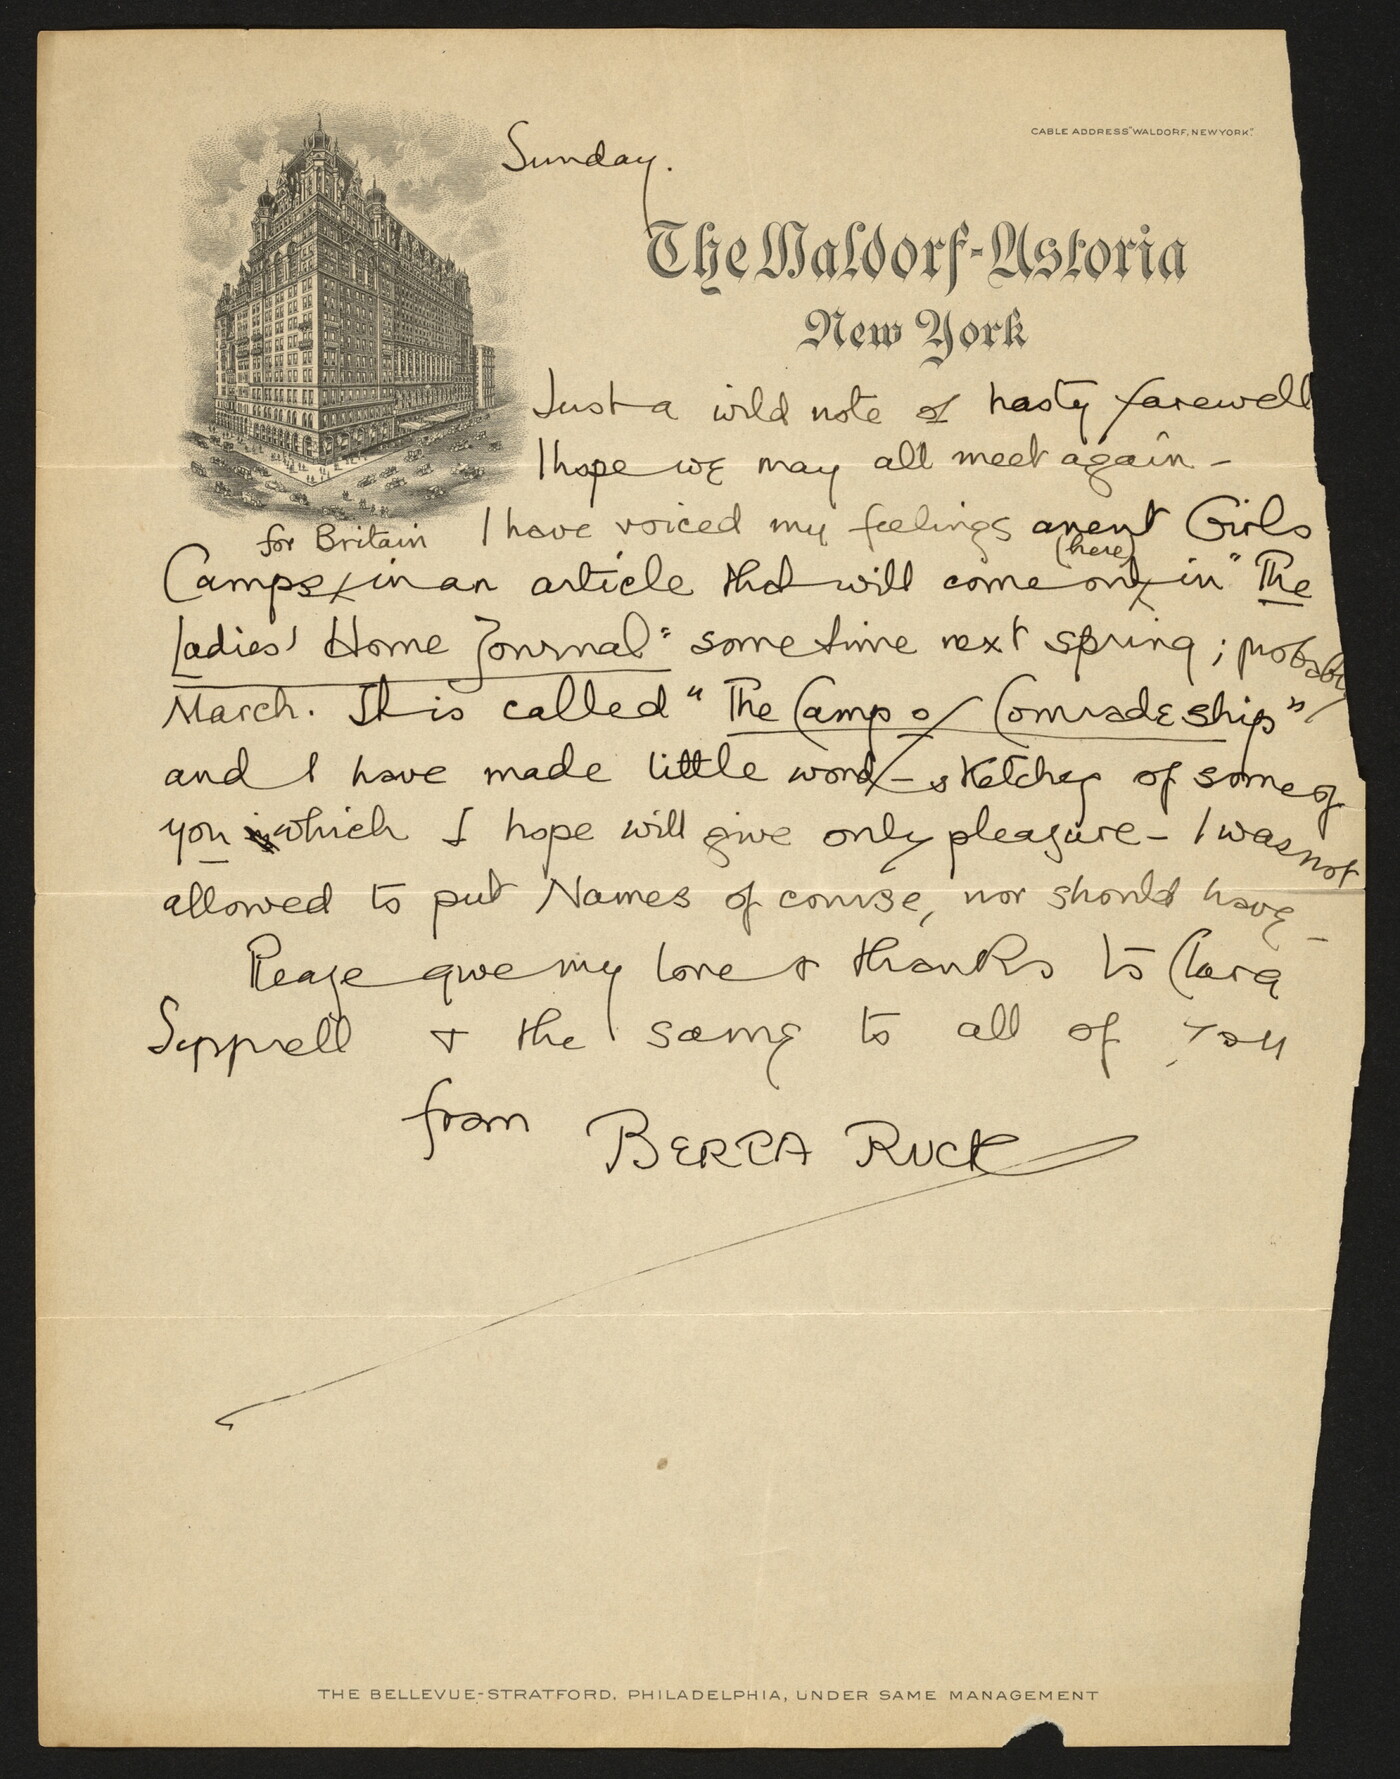 CABLE ADDRESS "WALDORF, NEW YORK."
Sunday.
The Waldorf-Astoria
New York
Just a wild note of hasty farewell
I hope we may all meet again -
I have voiced my feelings anent Girls
for Britain (here)
Camps x in an article that will come out x in "The
Ladies' Home Journal" some time next spring; probably
March. It is called "The Camp of Comradeship"
and I have made little word-sketches of some of
you which I hope will give only pleasure - I was not
allowed to put Names of course, nor should have -
Please give my love & thanks to Clara
Sipprell & the same to all of you
from BERTA RUCK
THE BELLEVUE-STRATFORD, PHILADELPHIA, UNDER SAME MANAGEMENT